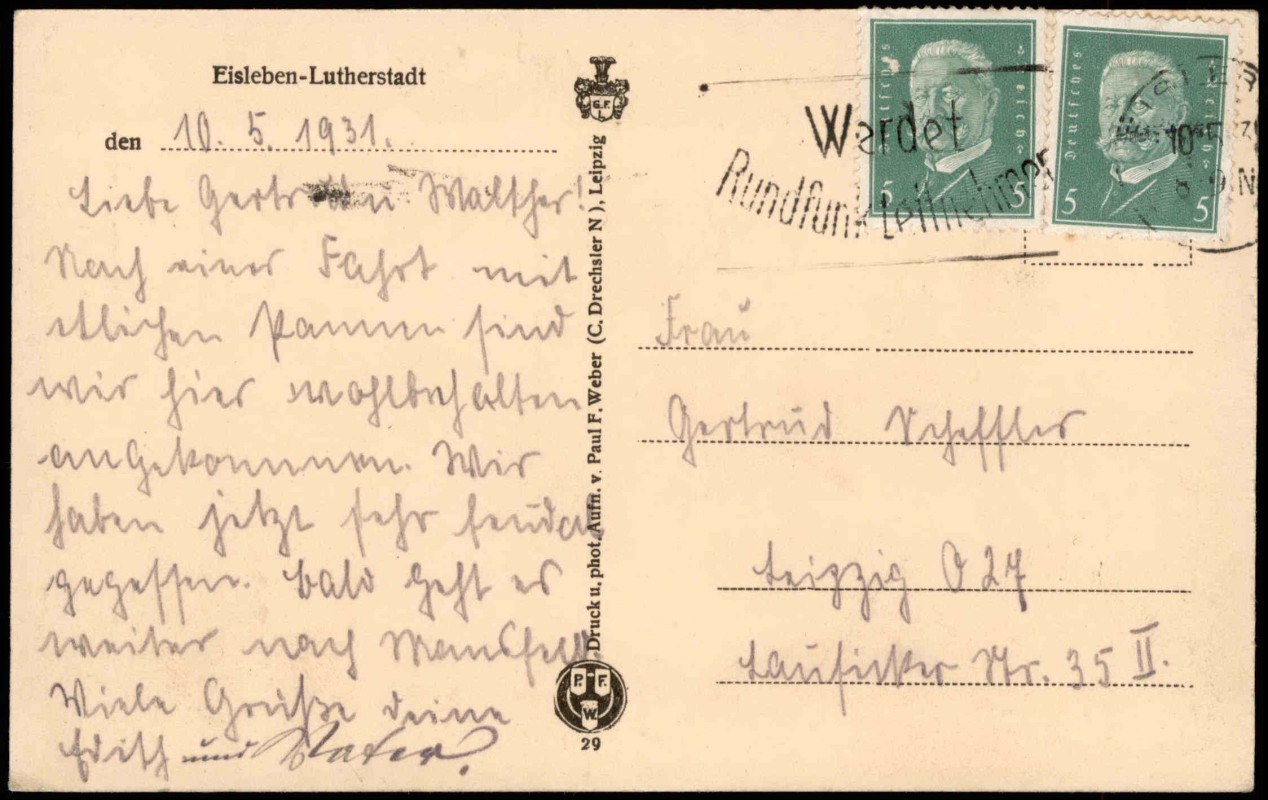 Eisleben-Lutherstadt
den 10. 5. 1931.
Liebe Gertrud Walther!
Nach einer Fahrt mit
etlichen Pannen sind
wir hier wohlbehalten
angekommen. Wir
haben jetzt sehr feudal
gegessen. Bald geht es
weiter nach Mansfeld.
Viele Grüße deine
Edith und Vater.
G.F.
L
Druck u. phot. Aufn. v. Paul F. Weber (C. Drechsler N), Leipzig
P. F.
W.
29
Deutsches Reich
5 5
Deutsches Reich
5 5
Werdet
Rundfunkteilnehmer
10
Frau
Gertrud Scheffler
Leipzig O 27
Lausicker Str. 35 II.